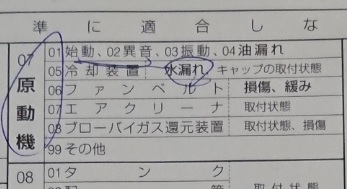 準に適合しな
07 原動機
01始動、02異音、03振動、04油漏れ
05冷却装置 水漏れ、キャップの取付状態
06ファンベルト 損傷、緩み
07エアクリーナ 取付状態
08ブローバイガス還元装置 取付状態、損傷
99その他
08
01タンク
取付状態